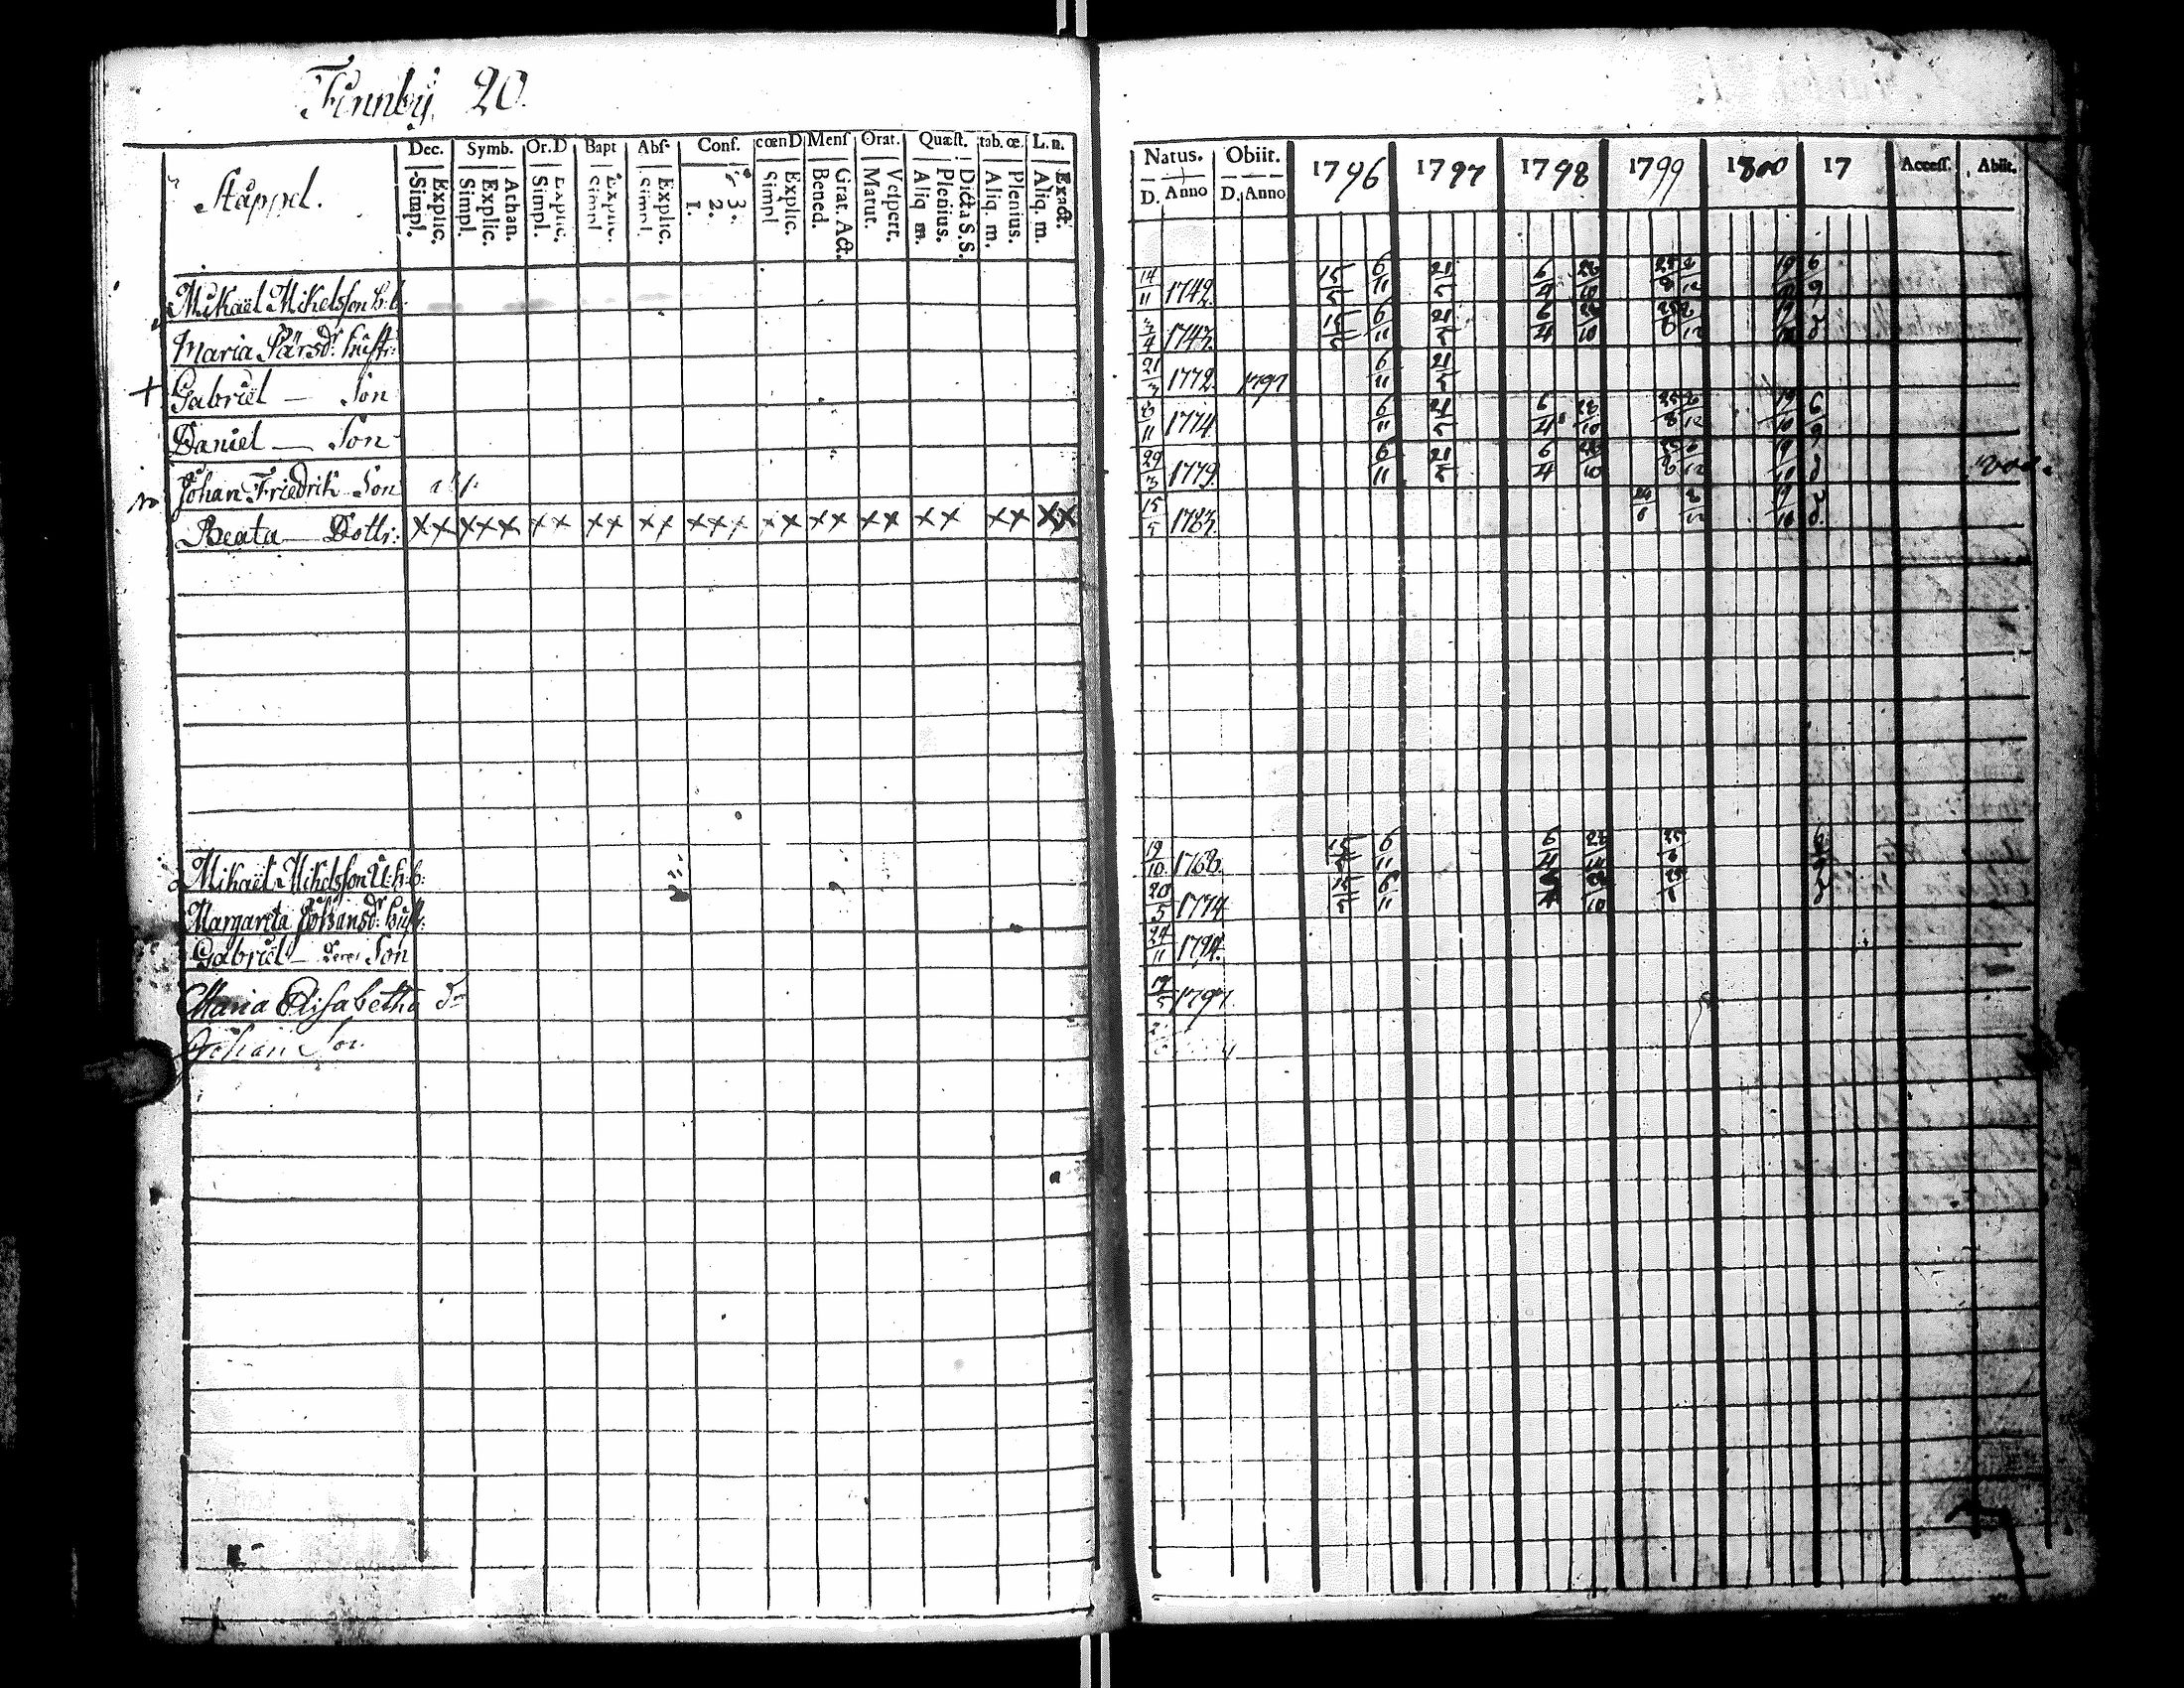 Finnby 20.
Dec. Symb. Or.D Bapt Abs. Conf. cœnD Mens Orat. Quæst. tab. œ. L. n.
Stappel.
Simpl. Explic. Simpl. Explic. Athan. Simpl. Explic. Simpl. Explic. Simpl. Explic. 1. 2. 3. Simpl Explic. Bened. Grat. Act. Matut. Vespert. Aliq. m. Plenius. Dicta S.S. Aliq. m. Plenius. Aliq. m. Exact.
Mikaël Mikelsson h:b:
Maria Pärsdr hustr:
+ Gabriel — Son
Daniel — Son
Johan Friedrik Son
Beata — Dottr: x x x x x x x x x x x x x x x x x x x x x x x x x x
Mikaël Mikelsson U:h:b:
Margareta Johansdr: hustr:
Gabriel — Son
Maria Elisabetha dr
Johan Son
Natus. Obiit. 1796 1797 1798 1799 1800 17 Access. Abiit.
D. Anno D. Anno
14/11 1742. 15/5 6/11 21/5 6/4 28/10 25/8 8/12 19/10 6/9
3/4 1743. 15/5 6/11 21/5 6/4 28/10 25/8 8/12 19/10
21/3 1772. 1797 6/11 21/5
8/11 1774. 6/11 21/5 6/4 28/10 25/8 8/12 19/10 6/9
29/3 1779. 6/11 21/5 6/4 28/10 25/8 8/12 19/10
15/5 1783. 8/12 19/10
19/10 1768. 15/5 6/11 6/4 28/10 25/8 6/9
20/5 1774. 15/5 6/11 28/10 25/8
24/11 1794.
1797.